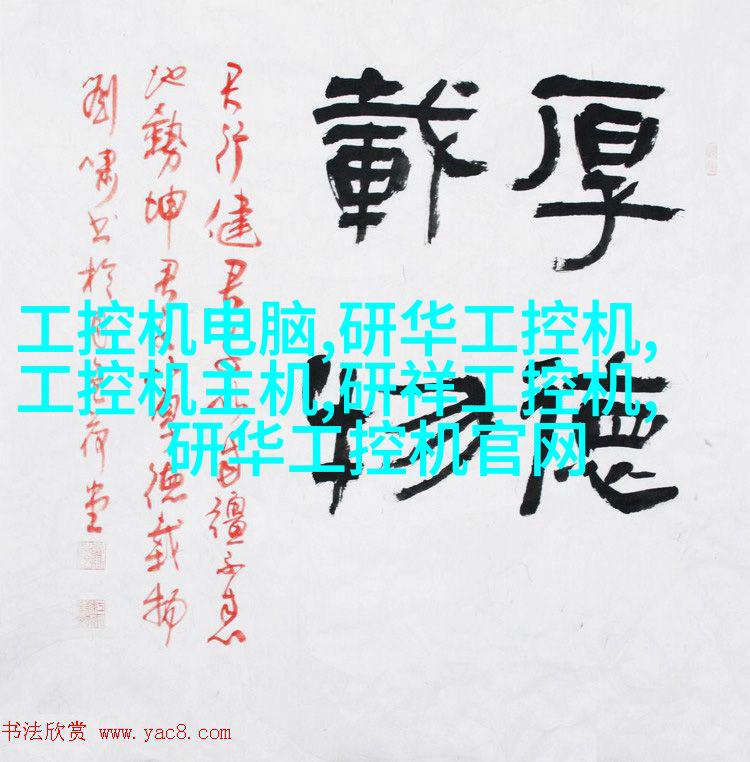 厚德
載物
天行健君子以自彊不息
地勢坤君子以厚德載物
劉嘯书於荷堂
工控机电脑,研华工控机,
工控机主机,研祥工控机,
研华工控机官网
书法欣赏 www.yac8.com